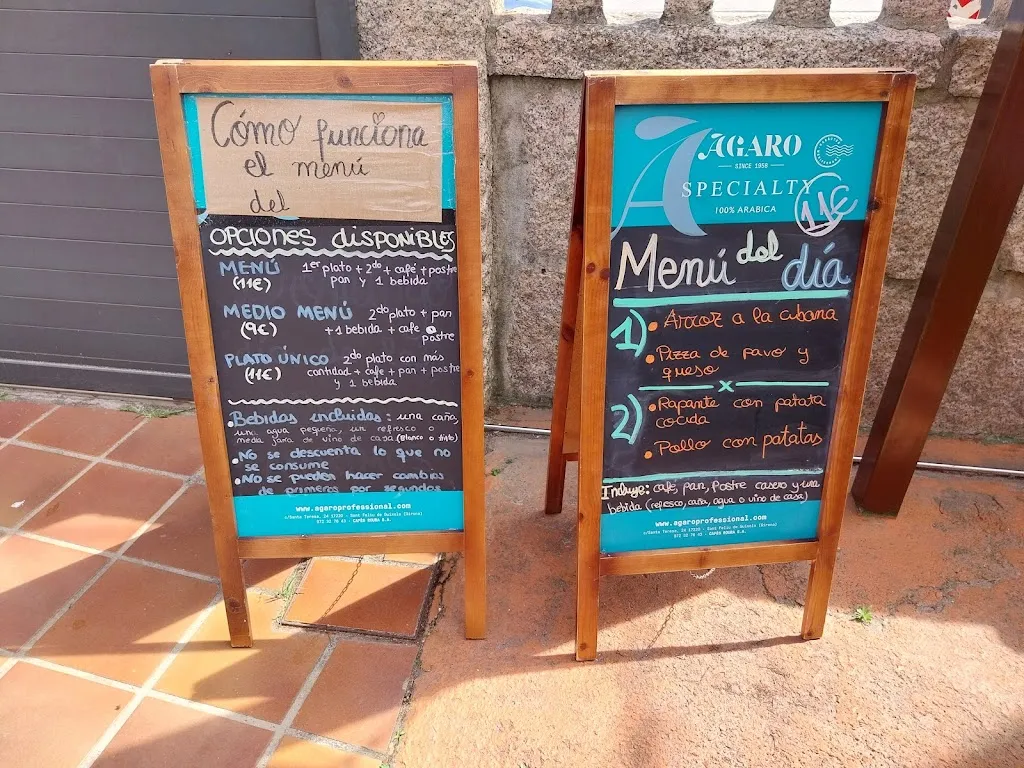 Cómo funciona
el menú
del
OPCIONES DISPONIBLES
MENÚ 1er plato + 2do + café + postre
(11€) pan y 1 bebida
MEDIO MENÚ 2do plato + pan
(9€) +1 bebida + café o
postre
PLATO ÚNICO 2do plato con más
(11€) cantidad + café + pan + postre
y 1 bebida
Bebidas incluidas: una caña,
una agua pequeña, un refresco o
media jarra de vino de casa (Blanco o tinto)
•No se descuenta lo que no
se consume
•No se pueden hacer cambios
de primeros por segundos
www.agaroprofessional.com
c/Santa Teresa, 24 17220 - Sant Feliu de Guíxols (Girona)
972 32 78 43 - CAFÉS ROURA S.A.
AGARO
SINCE 1958
SPECIALTY
100% ARABICA
11€
Menú del día
1) • Arroz a la cubana
• Pizza de pavo y
queso
x
2) • Rapante con patata
cocida
• Pollo con patatas
Incluye: café, pan, postre casero y una
bebida (refresco, caña, agua o vino de casa)
www.agaroprofessional.com
c/Santa Teresa, 24 17220 - Sant Feliu de Guíxols (Girona)
CAFÉS ROURA S.A.